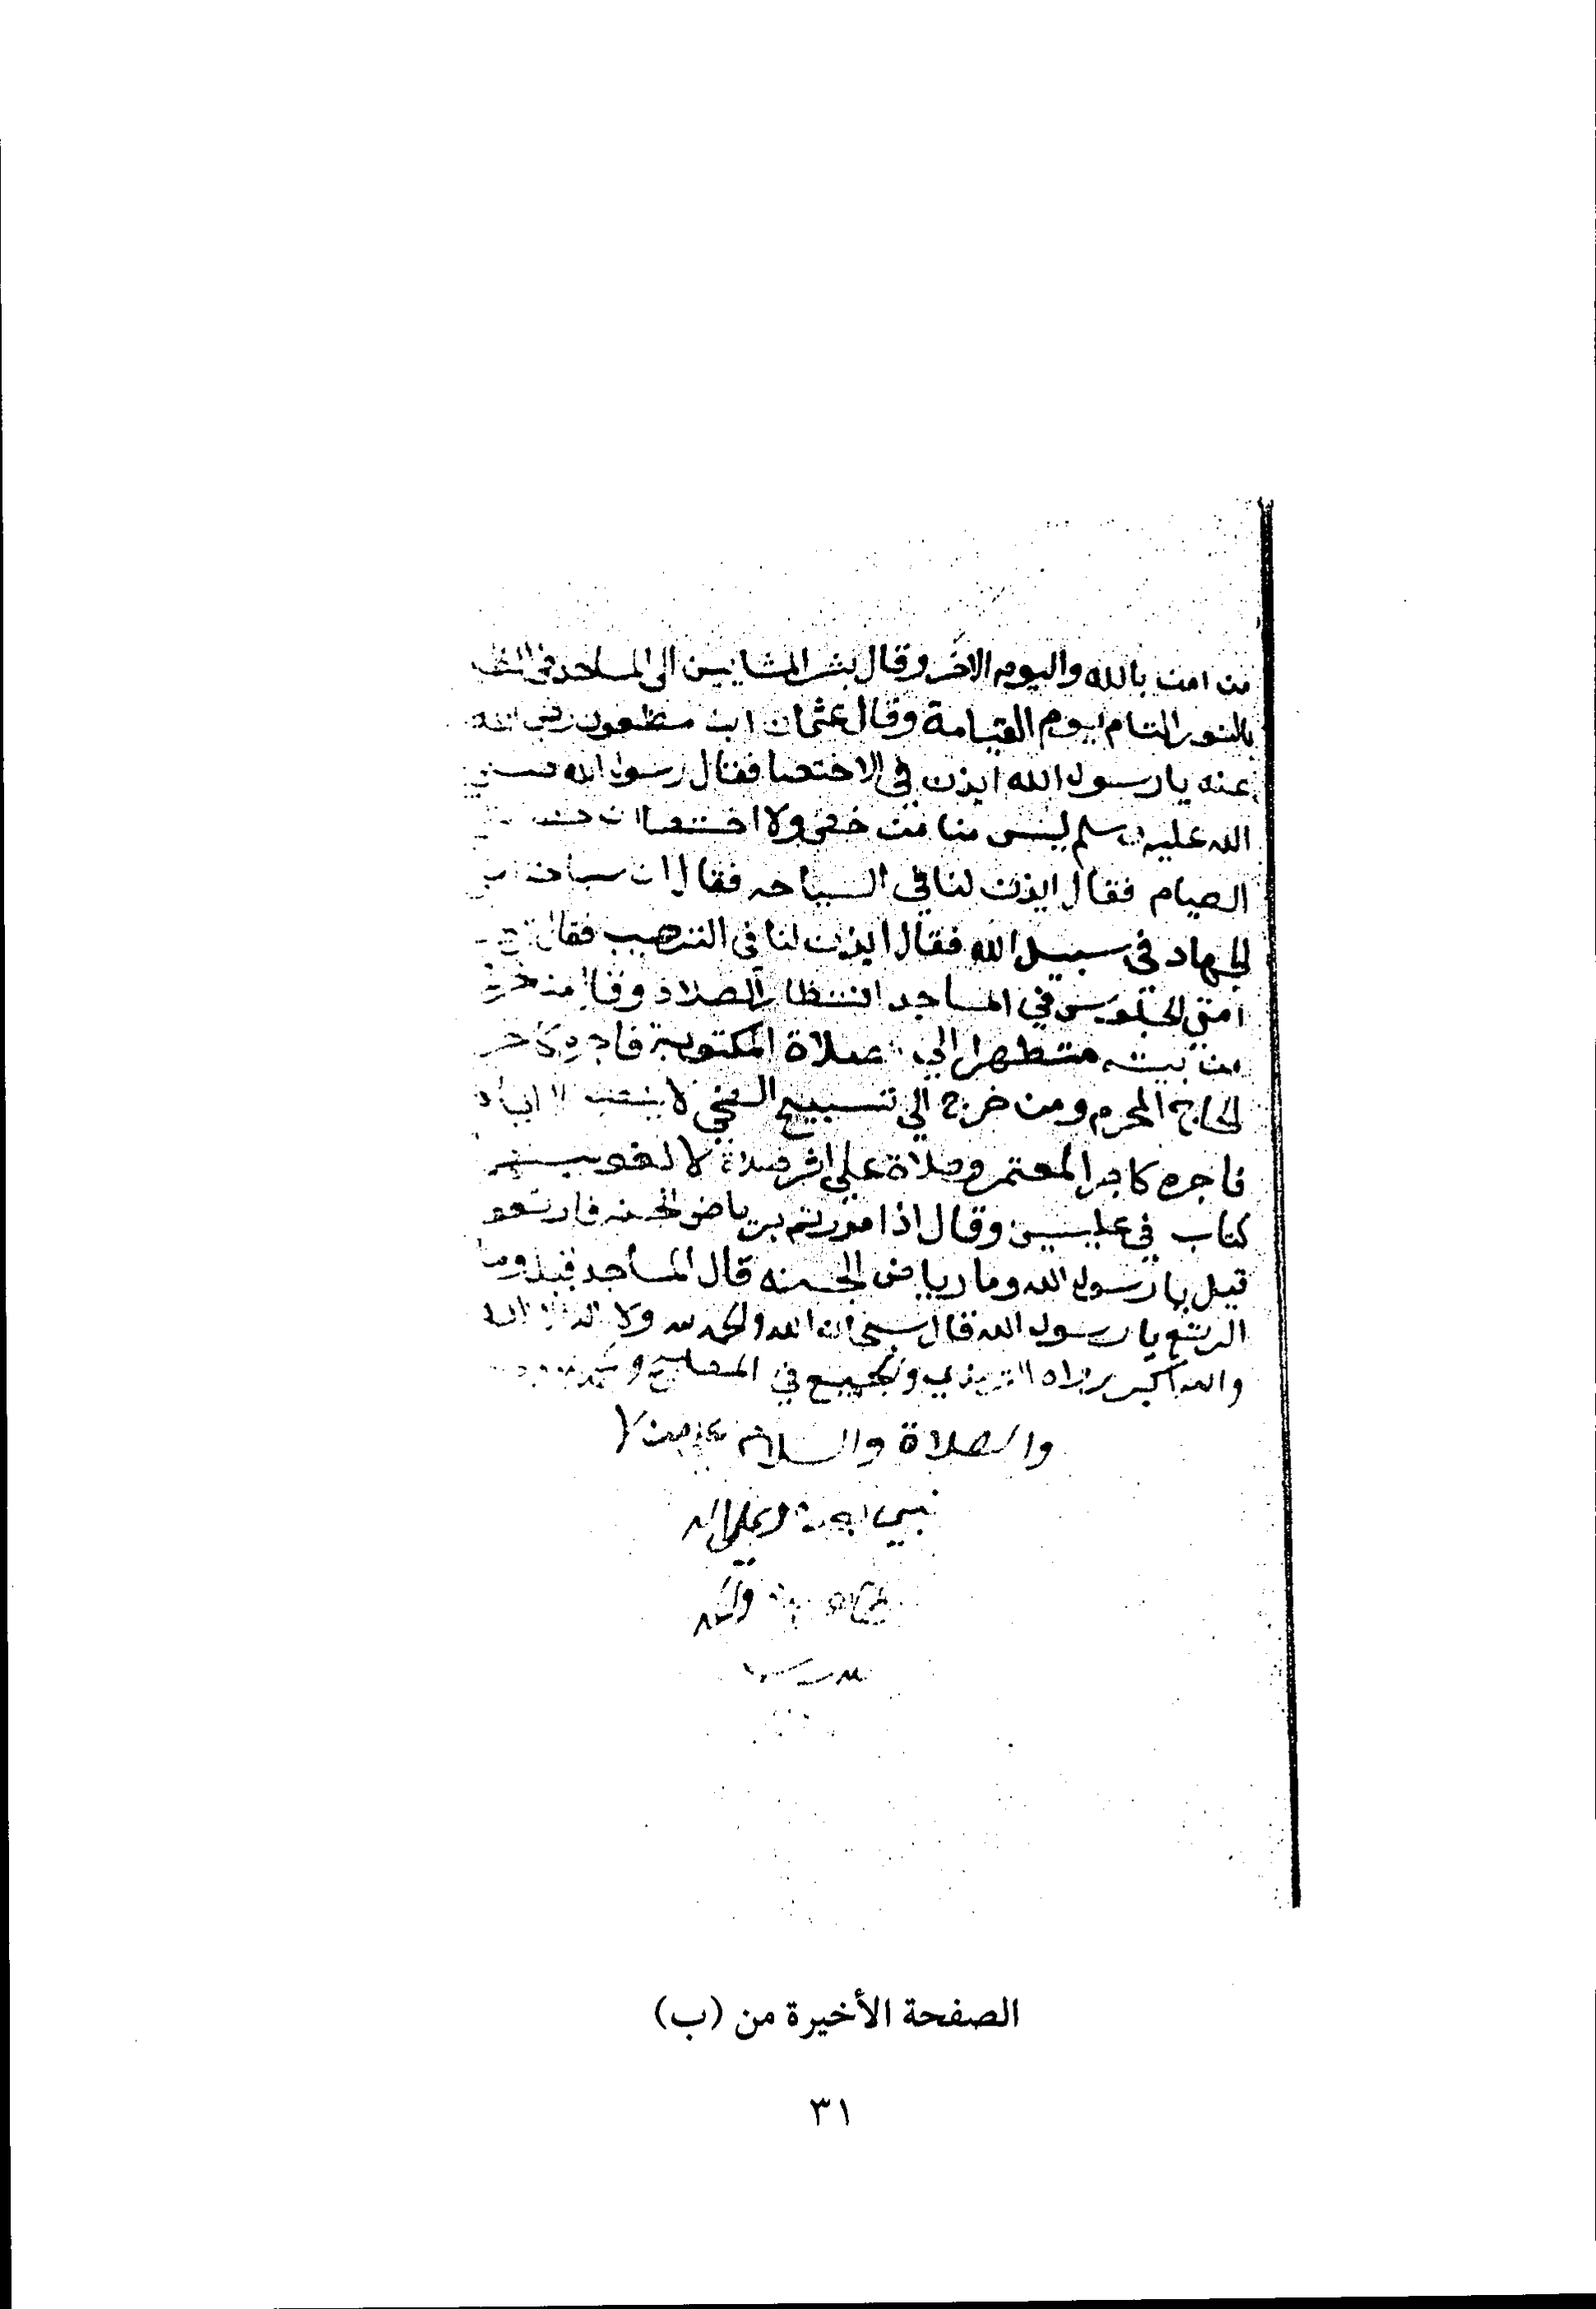 من امن بالله واليوم الاخر وقال بشر المشايين الى المساجد في
بالنور التام يوم القيامة وقال عثمان ابن مظعون رضي الله
عنه يا رسول الله ايذن في الاختصا فقال رسول الله صلى
الله عليه وسلم ليس منا من خصى ولا اختصا ان
الصيام فقال ايذن لنا في السياحه فقال ان سياحة
الجهاد في سبيل الله فقال ايذن لنا في الترهب فقال
امتي الجلوس في المساجد انتظار الصلاة وقال من خرج
من بيته متطهرا الى صلاة المكتوبة فاجره كاجر
الحاج المحرم ومن خرج الي تسبيح الضحي لا ينصبه الا اياه
فاجره كاجر المعتمر وصلاة على اثر صلاة لا لغو بينهما
كتاب في عليين وقال اذا مررتم برياض الجنه فارتعو
قيل يا رسول الله وما رياض الجنه قال المساجد قيل وما
الرتع يا رسول الله قال سبحان الله والحمد لله ولا اله الا الله
والله اكبر رواه الترمذي والجميع في المصابيح
والصلاة والسلام على من لا
نبي بعده وعلى اله
الصفحة الأخيرة من (ب)
٣١